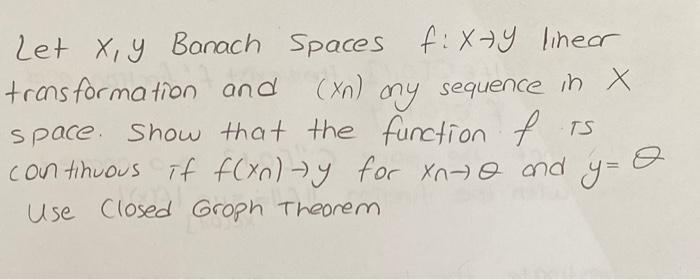 Let X, y Banach Spaces f: X→y linear
transformation and (xn) any sequence in X
space. Show that the function f is
continuous if f(xn)→y for xn→θ and y=θ
Use Closed Graph Theorem